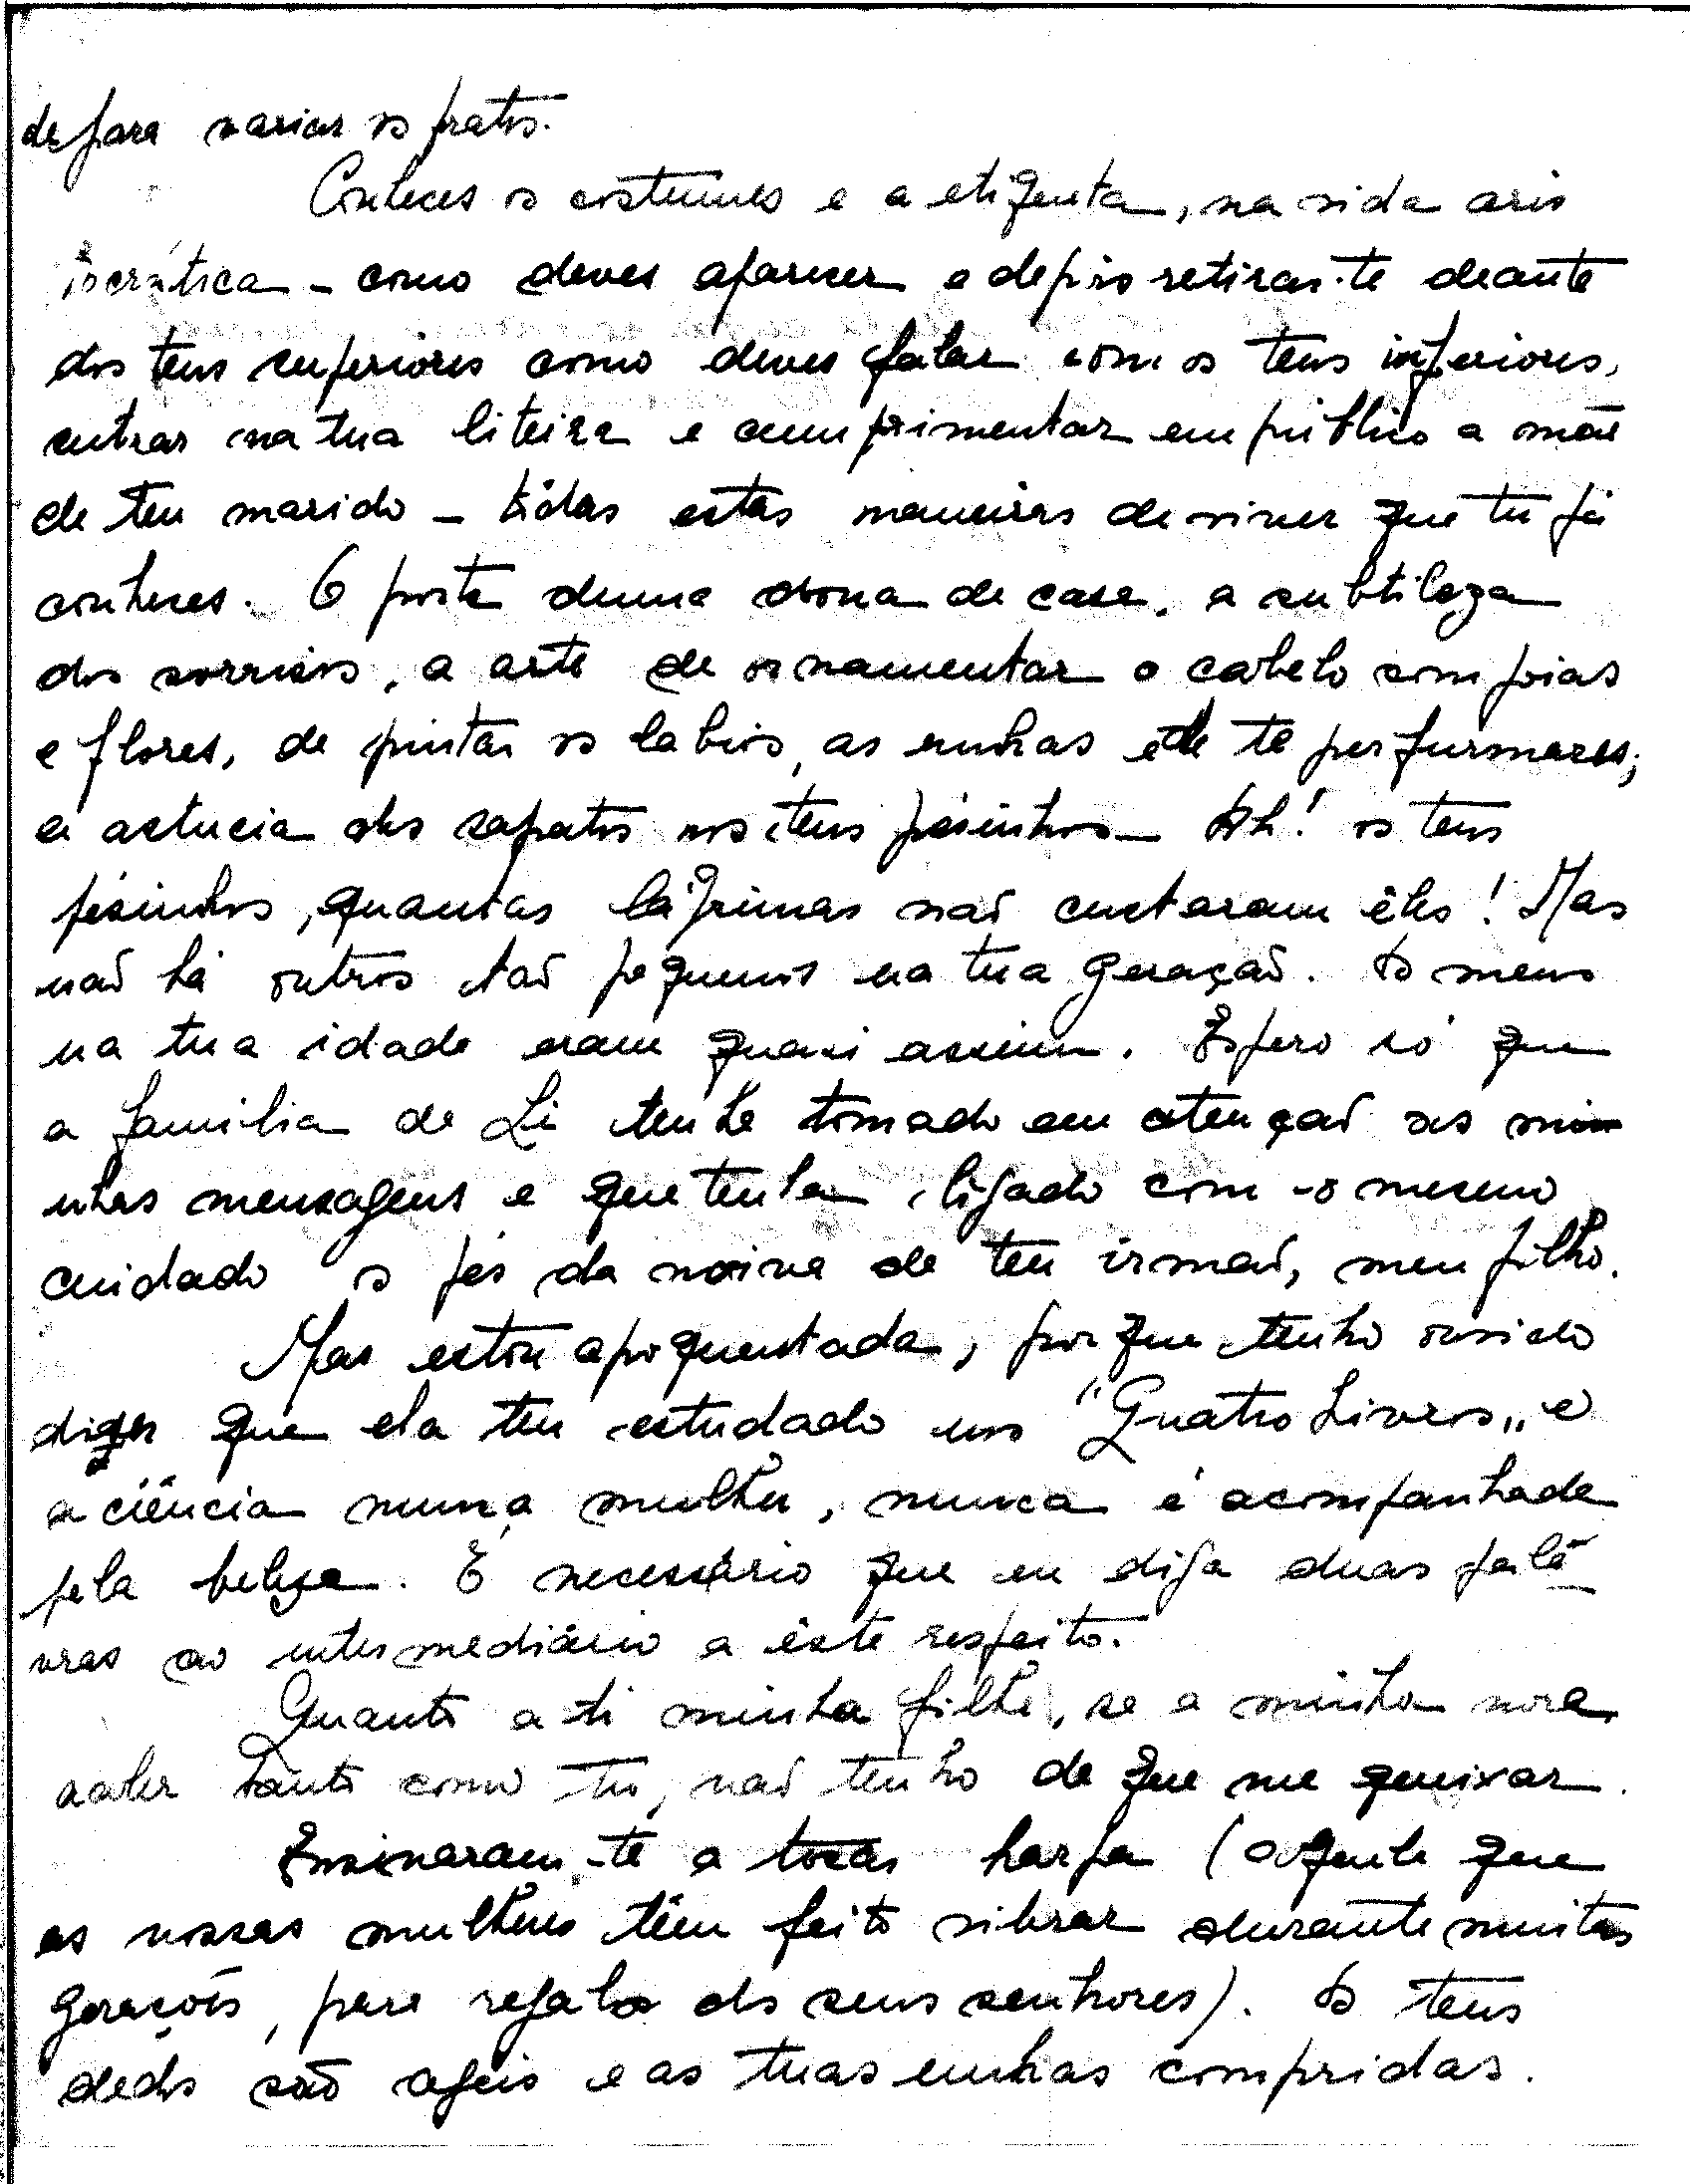 de para variar os pratos.
Conheces os costumes e a etiqueta, na vida aris
tocrática - como deves aparecer e depois retirar-te deante
dos teus superiores como deves falar com os teus inferiores,
entrar na tua liteira e cumprimentar em público a mãe
de teu marido - tôdas estas maneiras de viver que tu já
conheces. O porte duma dona de casa, a subtileza
dos sorrisos, a arte de ornamentar o cabelo com joias
e flores, de pintar os labios, as unhas e de te perfurmares;
a astucia dos sapatos nos teus pèsinhos - Ah! os teus
pèsinhos, quantas lágrimas não custaram êles! Mas
não há outros tão pequenos na tua geração. Os meus
na tua idade eram quasi assim. Espero só que
a familia de Li tenha tomado em atenção as mi
nhas mensagens e que tenha ligado com o mesmo
cuidado os pés da noiva de teu irmão, meu filho.
Mas estou apoquentada, porque tenho ouvido
dizer que ela tem estudado nos "Quatro Livros" e
a ciência numa mulher, nunca é acompanhada
pela beleza. É necessário que eu diga duas pala
vras ao intermediário a êste respeito.
Quanto a ti minha filha, se a minha nora
valer tanto como tu, não tenho de que me queixar.
Ensinaram-te a tocar harpa (aquela que
as nossas mulheres têm feito vibrar durante muitas
gerações, para regalo dos seus senhores). Os teus
dedos são ageis e as tuas unhas compridas.